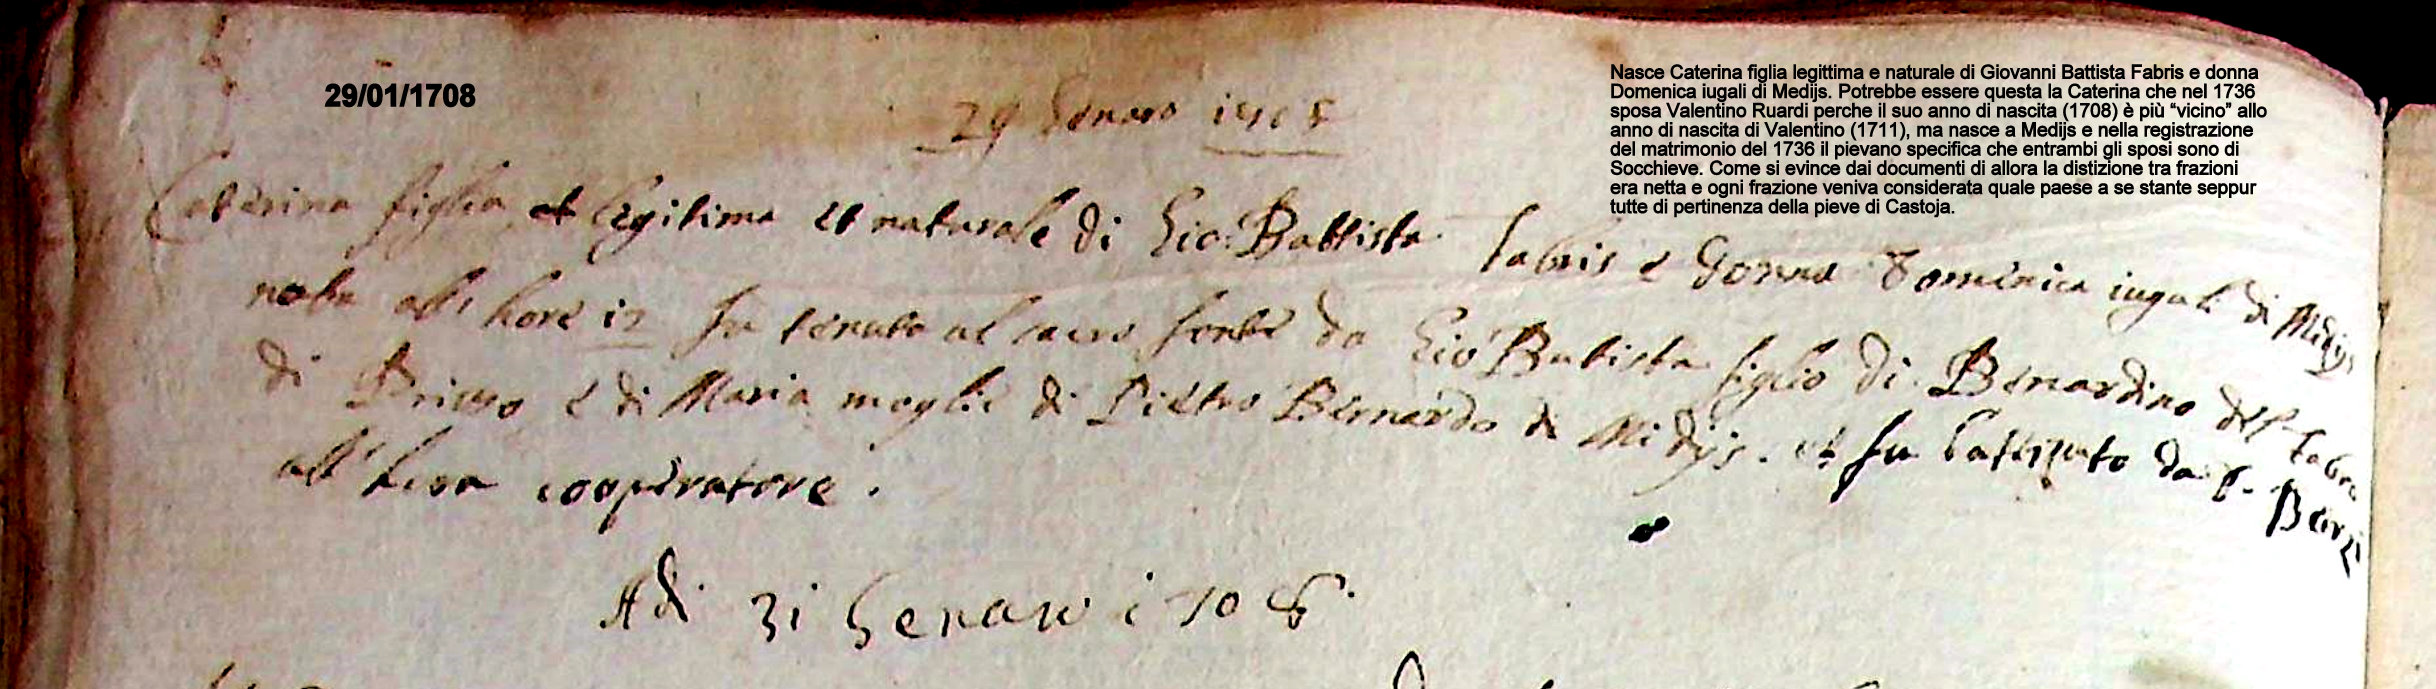 29/01/1708
Nasce Caterina figlia legittima e naturale di Giovanni Battista Fabris e donna
Domenica iugali di Medijs. Potrebbe essere questa la Caterina che nel 1736
sposa Valentino Ruardi perche il suo anno di nascita (1708) è più “vicino” allo
anno di nascita di Valentino (1711), ma nasce a Medijs e nella registrazione
del matrimonio del 1736 il pievano specifica che entrambi gli sposi sono di
Socchieve. Come si evince dai documenti di allora la distizione tra frazioni
era netta e ogni frazione veniva considerata quale paese a se stante seppur
tutte di pertinenza della pieve di Castoja.
29 Genaro 1708
Caterina figlia et legitima et naturale di Gio: Battista Fabris e donna Domenica iugali di Midijs
nata alle hore 12 fu tenuta al sacro fonte da Gio Batista figlio di Bernardino del Fabro
di Priuso e di Maria moglie di Pietro Bernardo di Midijs. et fu battizato da P.
all'hora cooperatore.
Adi 31 Genaro 1708.